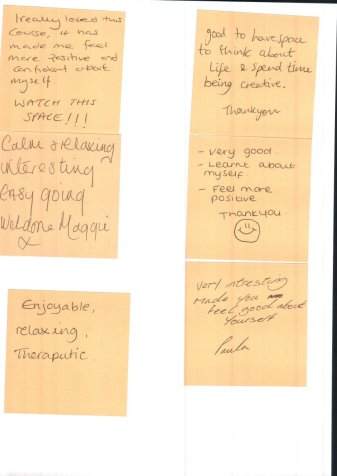 I really loved this
Course, it has
made me feel
more positive and
confident about
myself
WATCH THIS
SPACE!!!
Calm & relaxing
interesting
easy going
Weldone Maggi
x
Enjoyable,
relaxing,
Theraputic.
good to have space
to think about
life & spend time
being creative.
Thankyou
- very good.
- Learnt about
myself.
- Feel more
positive.
Thankyou
very intresting
Made you
feel good about
yourself
Paula